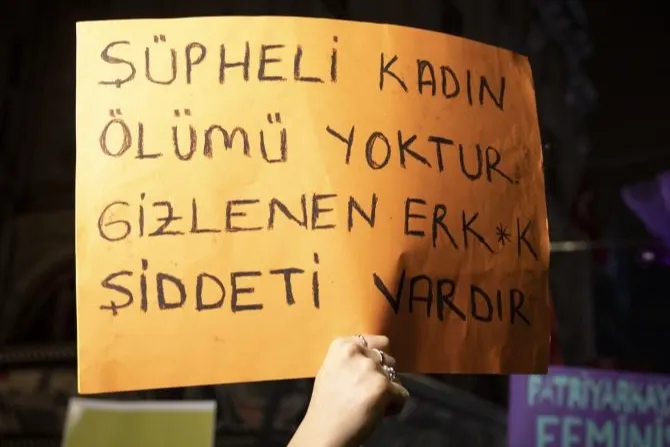 ŞÜPHELİ KADIN
ÖLÜMÜ YOKTUR
GİZLENEN ERK*K
ŞİDDETİ VARDIR
PATRİYARKAY
FEMİNİ